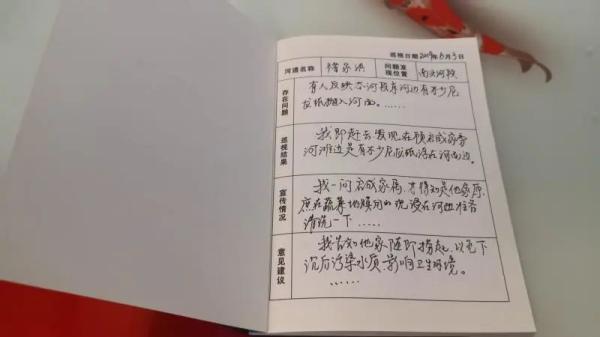 巡视日期2019年6月3日
河道名称 褚家浜 问题发现位置 南汊河段
存在问题
有人反映本河段有河边有不少尼龙纸抛入河面。……
巡视结果
我即赶去发现在顾启成家旁河滩边是有不少尼龙纸浮在河面边。
宣传情况
我一问启成家属,才得知是他家原底在蔬菜地膜用的现浸在河面准备清洗一下……
意见建议
我告知他家随即捞起,以免下沉后污染水质,影响卫生环境。
……